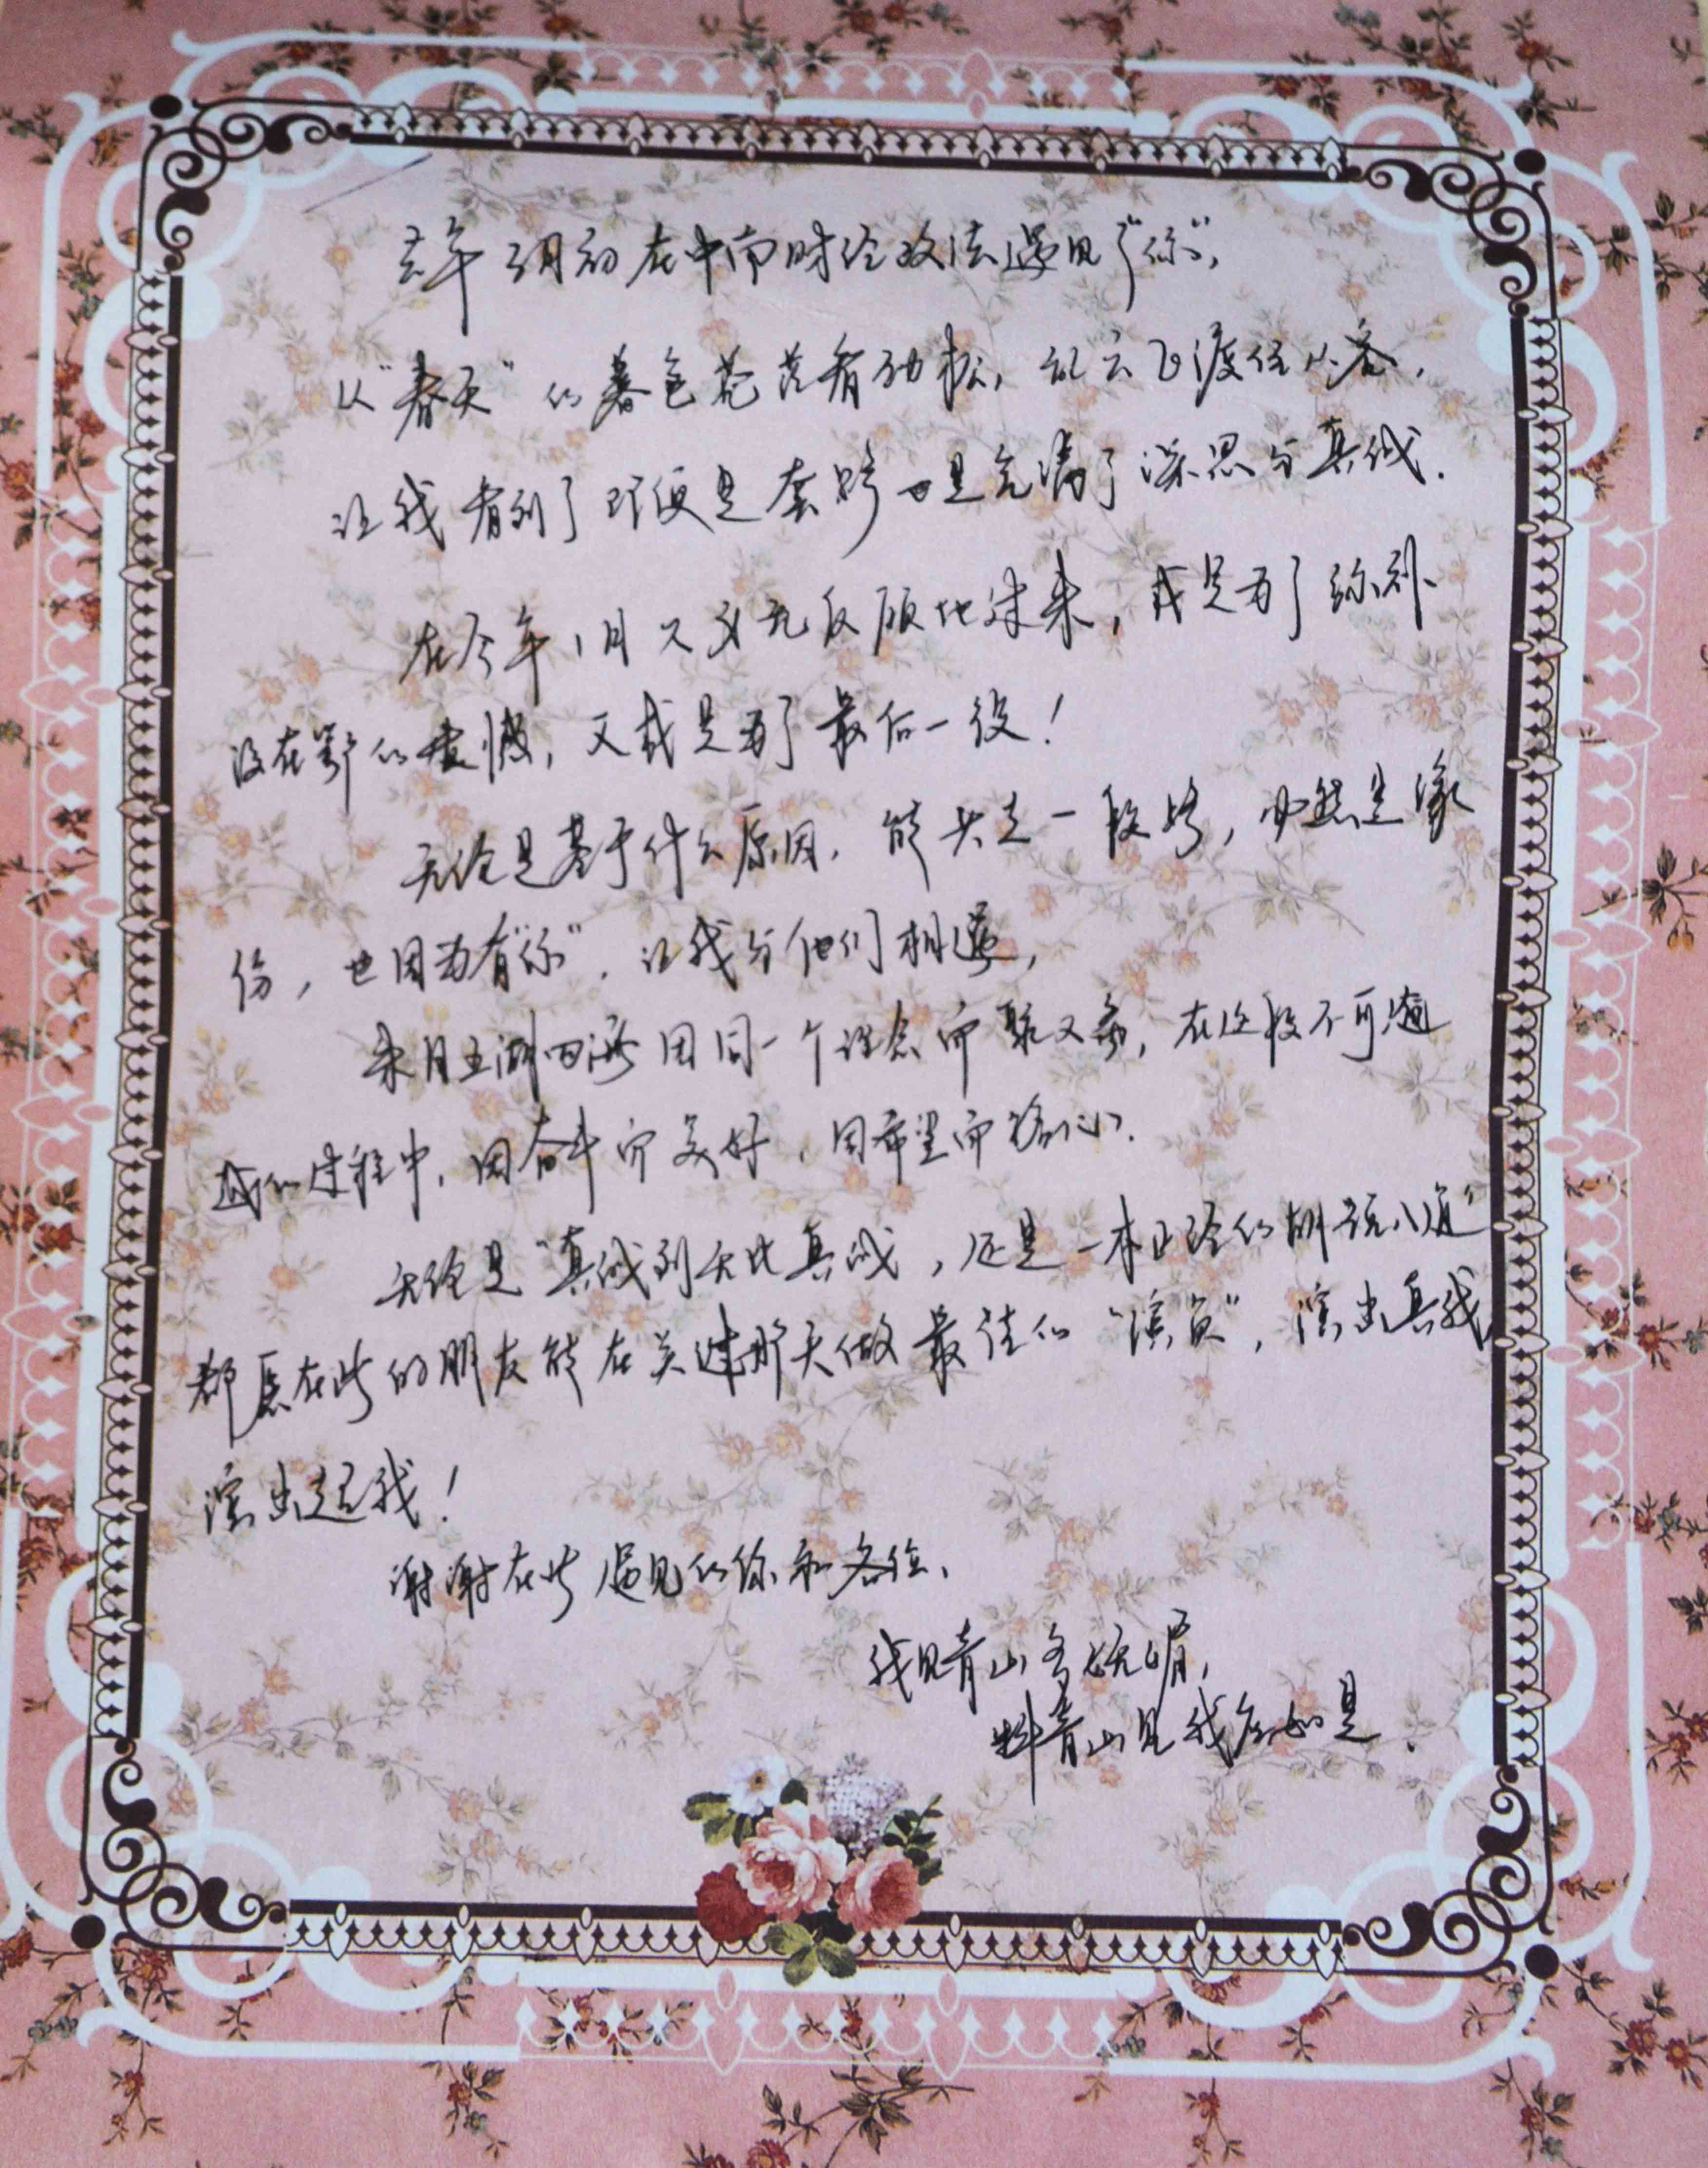 去年3月初在中南财经政法遇见了“你”，
从“春天”的暮色苍茫看劲松，乱云飞渡仍从容，
让我看到了即便是套路也是充满了深思与真诚.
在今年1月又义无反顾地过来，或是为了弥补
没在鄂的遗憾，又或是为了最后一役！
无论是基于什么原因，能共走一段路，必然是缘
份，也因为有“你”，让我与他们相遇，
来自五湖四海因同一个理念而聚又离，在这段不可逾
越的过程中，因奋斗而美好，因希望而铭心.
无论是“真诚到无比真诚，还是一本正经的胡说八道”
都愿在此的朋友能在关键那天做最佳的“演员”，演出真我，
演出超我！
谢谢在此遇见的你和各位、
我见青山多妩媚，
料青山见我应如是.